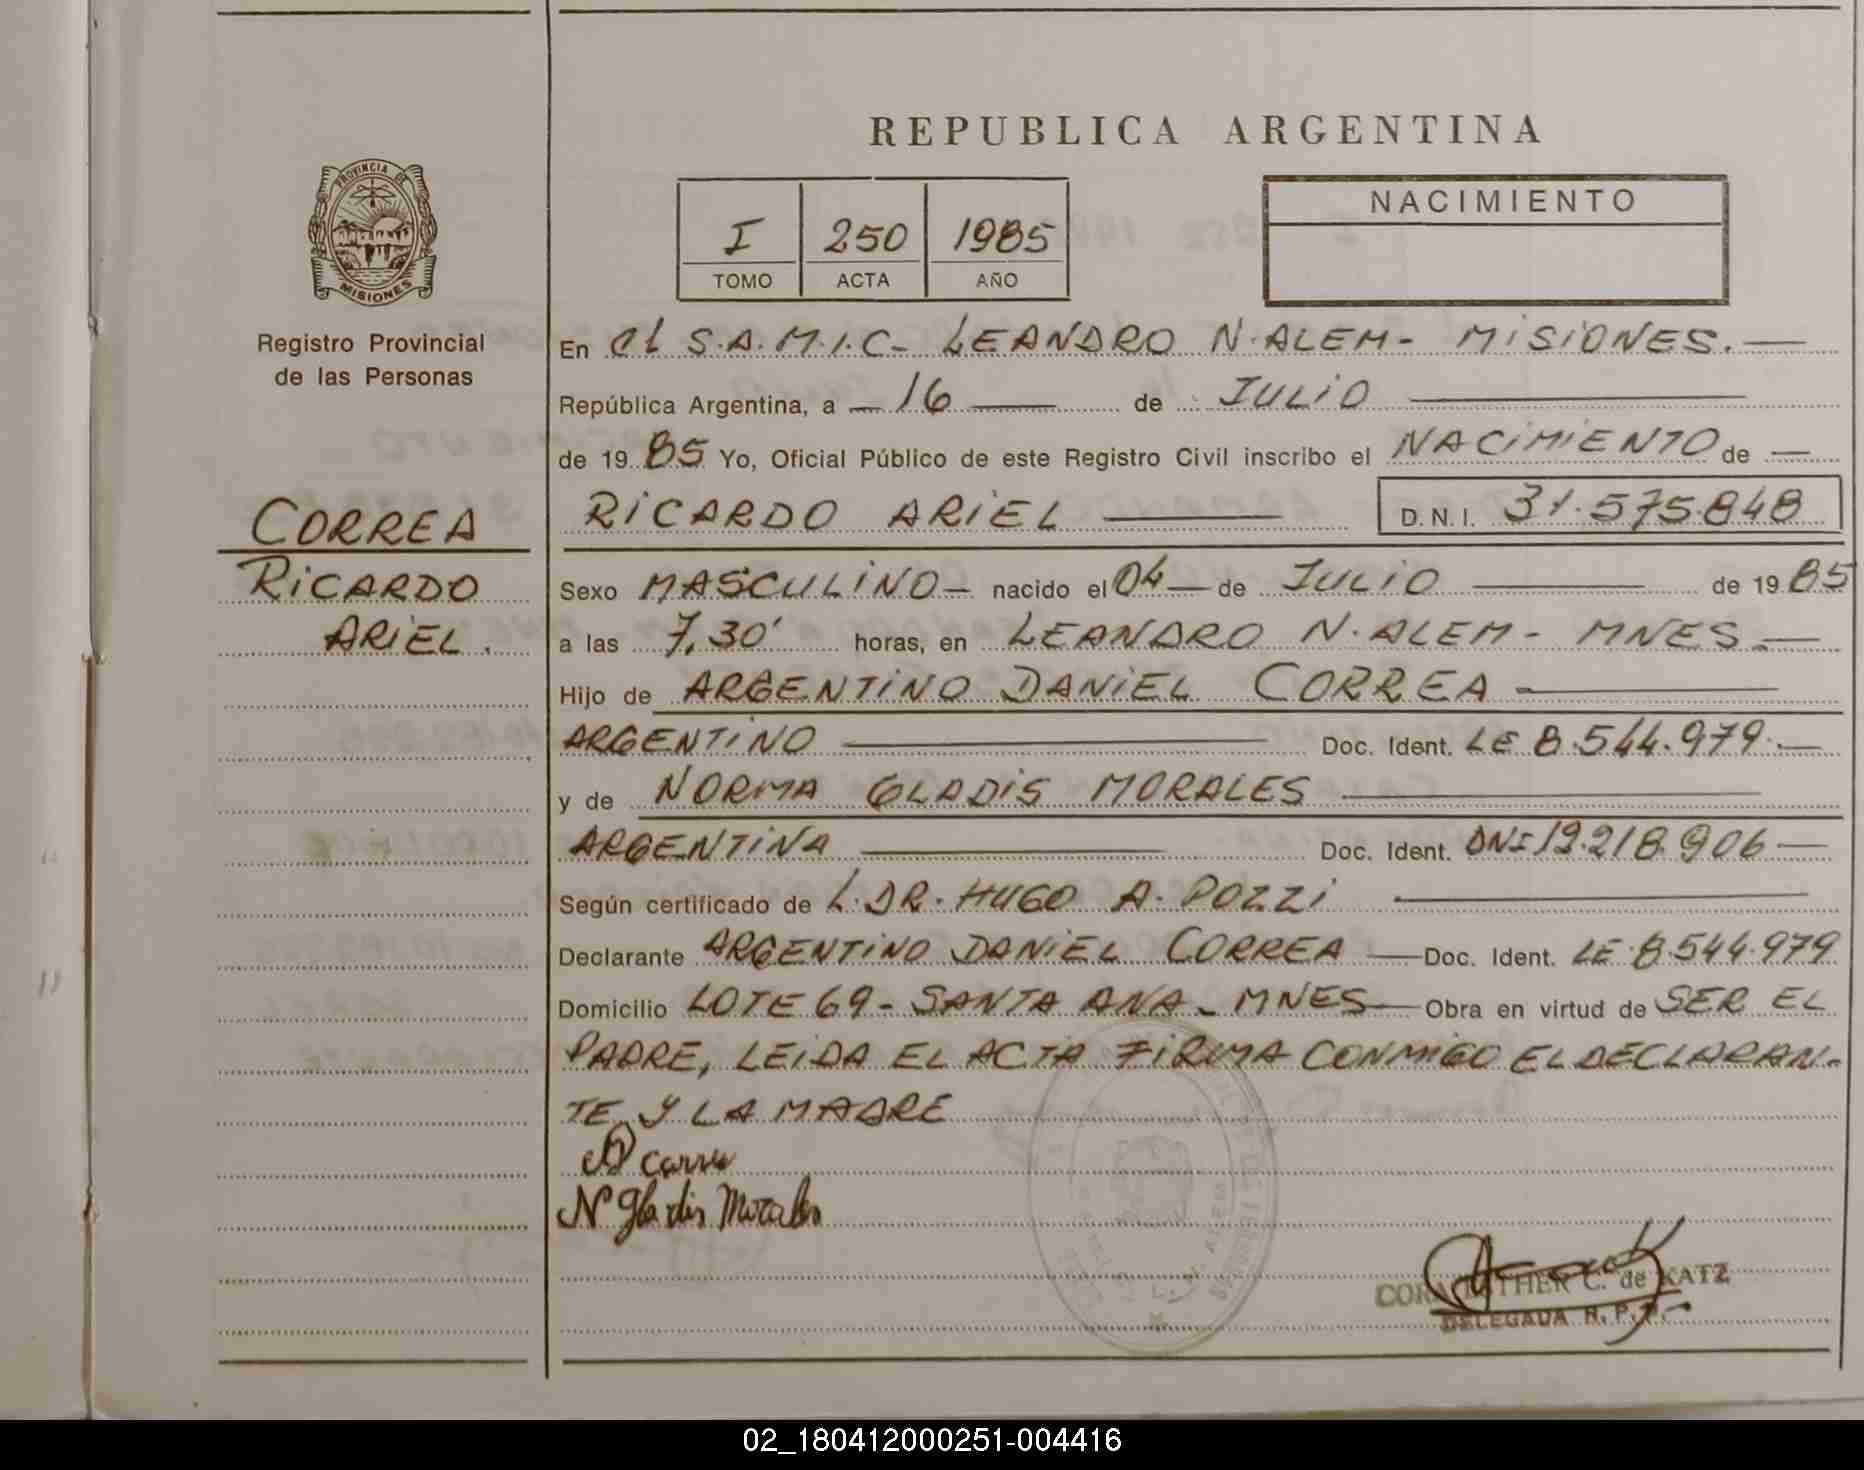 REPUBLICA ARGENTINA
PROVINCIA DE
MISIONES
Registro Provincial
de las Personas
I 250 1985
TOMO ACTA AÑO
NACIMIENTO
En el S.A.M.I.C- LEANDRO N. ALEM- MISIONES.—
República Argentina, a — 16 — de JULIO —
de 19 85 Yo, Oficial Público de este Registro Civil inscribo el NACIMIENTO de —
CORREA
RICARDO ARIEL — D.N.I. 31.575.848
RICARDO
ARIEL.
Sexo MASCULINO— nacido el 04— de JULIO — de 19 85
a las 7,30' horas, en LEANDRO N. ALEM- MNES.—
Hijo de ARGENTINO DANIEL CORREA —
ARGENTINO — Doc. Ident. LE 8.544.979.—
y de NORMA GLADIS MORALES —
ARGENTINA — Doc. Ident. DNI 19.218.906—
Según certificado de L. DR. HUGO A. POZZI —
Declarante ARGENTINO DANIEL CORREA — Doc. Ident. LE 8.544.979
Domicilio LOTE 69- SANTA ANA- MNES— Obra en virtud de SER EL
PADRE, LEIDA EL ACTA FIRMA CONMIGO EL DECLARAN-
TE Y LA MADRE
Correa
N Gladis Morales
CORA ESTHER C. de KATZ
DELEGADA R.P.P.
02_180412000251-004416